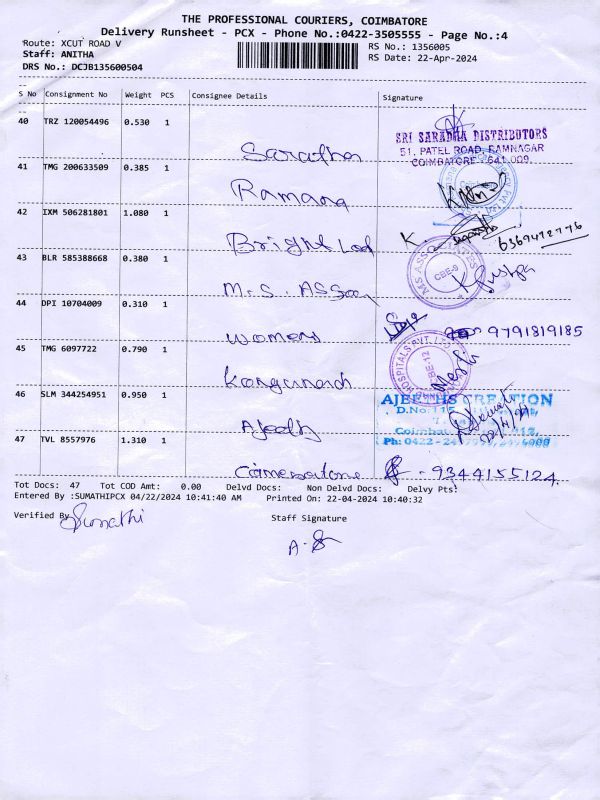 THE PROFESSIONAL COURIERS, COIMBATORE
Delivery Runsheet - PCX - Phone No.:0422-3505555 - Page No.:4
Route: XCUT ROAD V
RS No.: 1356005
Staff: ANITHA
RS Date: 22-Apr-2024
DRS No.: DCJB135600504
S No Consignment No Weight PCS Consignee Details Signature
40 TRZ 120054496 0.530 1
SRI SARADHA DISTRIBUTORS
51, PATEL ROAD, RAMNAGAR
COIMBATORE - 641 009.
Saradha
41 TMG 200633509 0.385 1
Ramana
42 IXM 506281801 1.080 1
Bright Lad
6369472776
43 BLR 585388668 0.380 1
M.S. ASSOCIATES
CBE-9
M.S. ASSON
44 DPI 10704009 0.310 1
Womens
9791819185
45 TMG 6097722 0.790 1
HOSPITALS PVT. LTD
CBE-12
46 SLM 344254951 0.950 1
AJEETHS CREATION
D.No:115
Ajeeth
22/4/24
47 TVL 8557976 1.310 1
Ph: 0422-
- 9344155124
Tot Docs: 47 Tot COD Amt: 0.00 Delvd Docs: Non Delvd Docs: Delvy Pts:
Entered By :SUMATHIPCX 04/22/2024 10:41:40 AM Printed On: 22-04-2024 10:40:32
Verified By Sumathi
Staff Signature
A.S